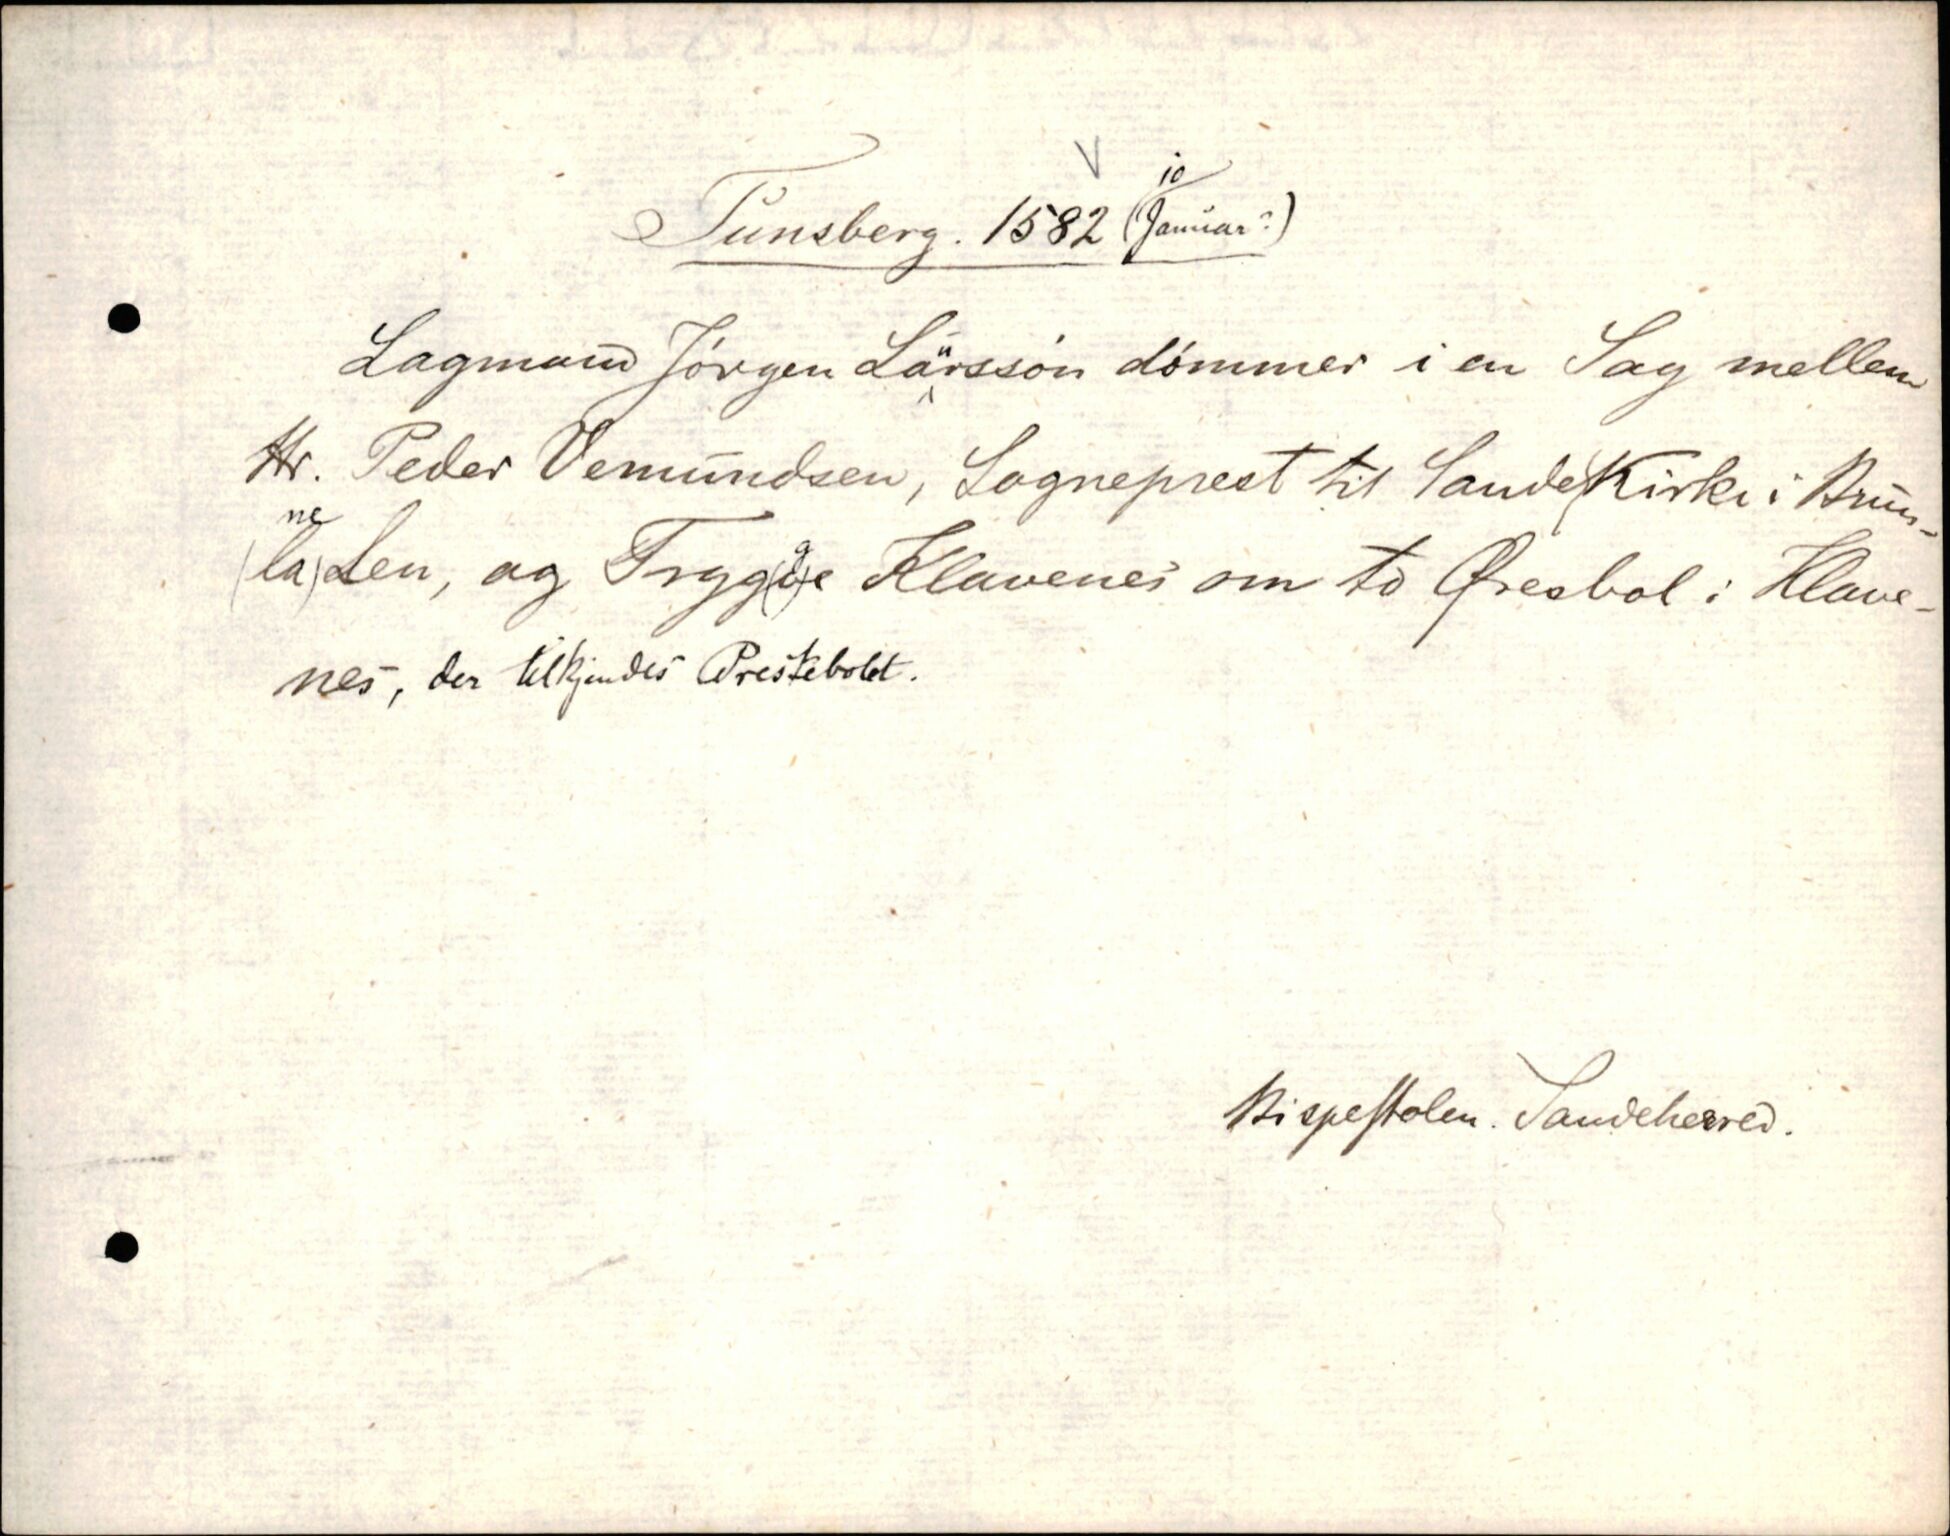 Tunsberg. 1582 (10 Januar?)
Lagmand Jörgen Lärssön dömmer i en Sag mellem
Hr. Peder Vemundsen, Sogneprest til Sande Kirke i Brun-
(la) ne Len, og Trygg(v)ge Klavenes om to Øresbol i Klave-
nes, der tilkjendes Prestebolet.
Bispestolen. Sandeherred.